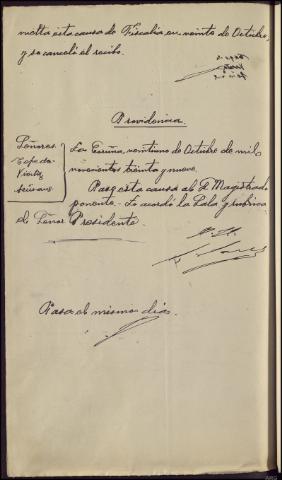 vuelta esta causa de Fiscalía en veinte de Octubre,
y se canceló el recibo.
Providencia
Señores
La Coruña, veintiuno de Octubre de mil
novecientos treinta y nueve.
Pase esta causa al Sr. Magistrado
ponente. Lo acordó la Sala y rubrica
el Señor Presidente.
Pasa el mismo día.